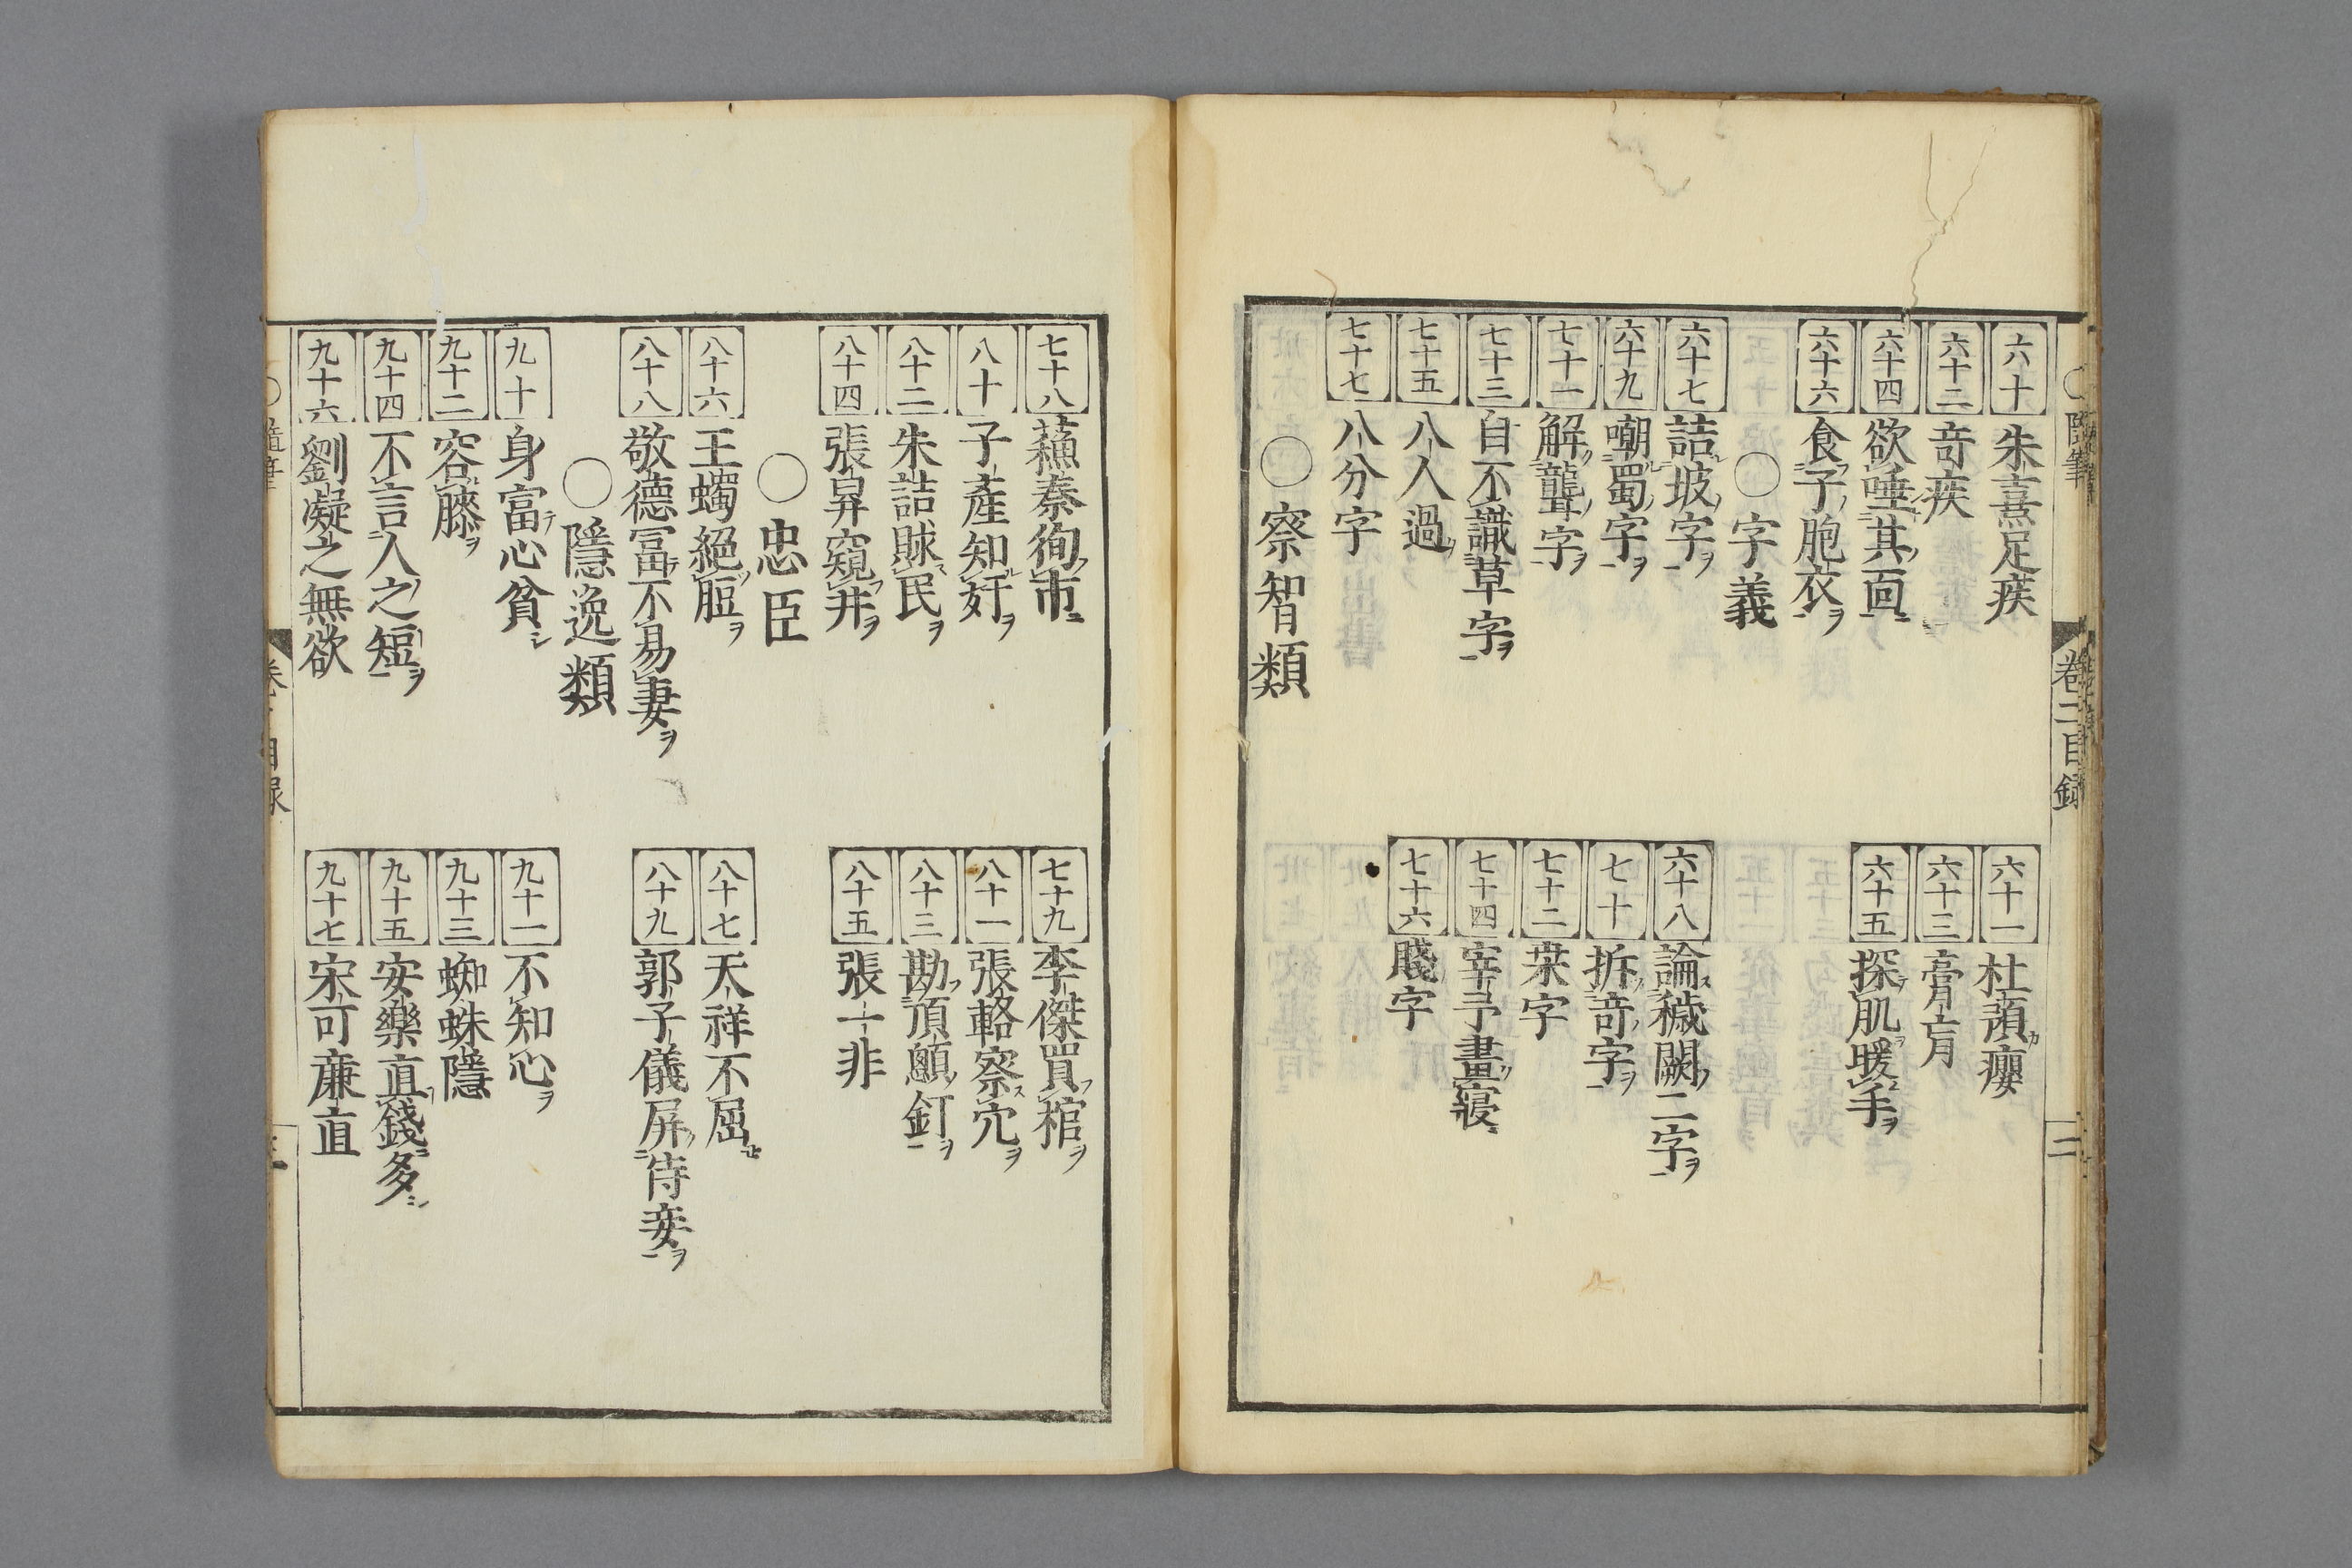 六十 朱熹足疾
六十一 杜預癭
六十二 奇疾
六十三 膏肓
六十四 欲唾其面
六十五 探肌暖手ヲ
六十六 食子胞衣ヲ
〇字義
六十七 詰坡字ヲ
六十八 論穢闕二字ヲ
六十九 嘲蜀字ヲ
七十 拆奇字ヲ
七十一 解龔字ヲ
七十二 桒字
七十三 自不識草字ヲ
七十四 宰予晝寢
七十五 八人過
七十六 賤字
七十七 八分字
〇察智類
卷二目録
二
七十八 蘓秦徇市ニ
七十九 李傑買棺ヲ
八十 子産知奸ヲ
八十一 張輅察穴ヲ
八十二 朱詰賕民ヲ
八十三 勘頂顱釘ヲ
八十四 張昇窺井ヲ
八十五 張一非
〇忠臣
八十六 王蠋絕脰ヲ
八十七 天祥不屈
八十八 敬德富不易妻ヲ
八十九 郭子儀屏侍妾ヲ
〇隱逸類
九十 身富テ心貧シ
九十一 不知心ヲ
九十二 容膝ヲ
九十三 蜘蛛隱
九十四 不言人之短ヲ
九十五 安樂直錢多シ
九十六 劉凝之無欲
九十七 宋可廉直